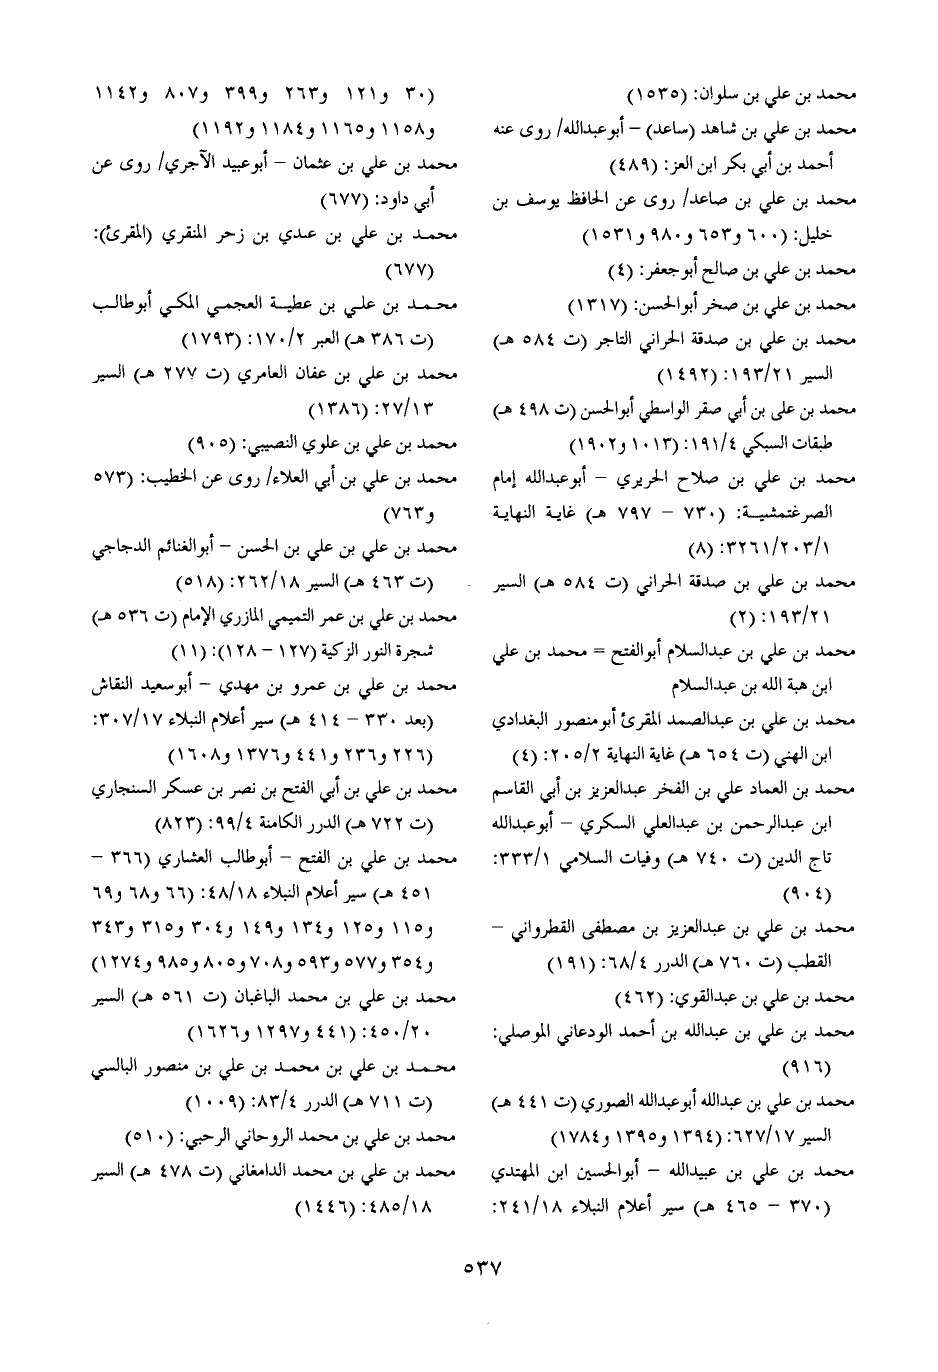 محمد بن علي بن سلوان: (١٥٣٥)
محمد بن علي بن شاهد (ساعد) – أبوعبدالله/ روى عنه
أحمد بن أبي بكر ابن العز: (٤٨٩)
محمد بن علي بن صاعد/ روى عن الحافظ يوسف بن
خليل: (٦٠٠ و٦٥٣ و٩٨٠ و١٥٣١)
محمد بن علي بن صالح أبوجعفر: (٤)
محمد بن علي بن صخر أبوالحسن: (١٣١٧)
محمد بن علي بن صدقة الحراني التاجر (ت ٥٨٤ هـ)
السير ١٩٣/٢١: (١٤٩٢)
محمد بن على بن أبي صقر الواسطي أبوالحسن (ت ٤٩٨ هـ)
طبقات السبكي ١٩١/٤: (١٠١٣ و١٩٠٢)
محمد بن علي بن صلاح الحريري – أبوعبدالله إمام
الصرغتمشية: (٧٣٠ – ٧٩٧ هـ) غاية النهاية
٣٢٦١/٢٠٣/١: (٨)
محمد بن علي بن صدقة الحراني (ت ٥٨٤ هـ) السير
١٩٣/٢١: (٢)
محمد بن علي بن عبدالسلام أبوالفتح = محمد بن علي
ابن هبة الله بن عبدالسلام
محمد بن علي بن عبدالصمد المقرئ أبومنصور البغدادي
ابن الهني (ت ٦٥٤ هـ) غاية النهاية ٢٠٥/٢: (٤)
محمد بن العماد علي بن الفخر عبدالعزيز بن أبي القاسم
ابن عبدالرحمن بن عبدالعلي السكري – أبوعبدالله
تاج الدين (ت ٧٤٠ هـ) وفيات السلامي ٣٣٣/١:
(٩٠٤)
محمد بن علي بن عبدالعزيز بن مصطفى القطرواني –
القطب (ت ٧٦٠ هـ) الدرر ٦٨/٤: (١٩١)
محمد بن علي بن عبدالقوي: (٤٦٢)
محمد بن علي بن عبدالله بن أحمد الودعاني الموصلي:
(٩١٦)
محمد بن علي بن عبدالله أبوعبدالله الصوري (ت ٤٤١ هـ)
السير ٦٢٧/١٧: (١٣٩٤ و١٣٩٥ و١٧٨٤)
محمد بن علي بن عبيدالله – أبوالحسين ابن المهتدي
(٣٧٠ – ٤٦٥ هـ) سير أعلام النبلاء ٢٤١/١٨:
(٣٠ و١٢١ و٢٦٣ و٣٩٩ و٨٠٧ و١١٤٢
و١١٥٨ و١١٦٥ و١١٨٤ و١١٩٢)
محمد بن علي بن عثمان – أبوعبيد الآجري/ روى عن
أبي داود: (٦٧٧)
محمد بن علي بن عدي بن زحر المنقري (المقرئ):
(٦٧٧)
محمد بن علي بن عطية العجمي المكي أبوطالب
(ت ٣٨٦ هـ) العبر ١٧٠/٢: (١٧٩٣)
محمد بن علي بن عفان العامري (ت ٢٧٧ هـ) السير
٢٧/١٣: (١٣٨٦)
محمد بن علي بن علوي النصيبي: (٩٠٥)
محمد بن علي بن أبي العلاء/ روى عن الخطيب: (٥٧٣
و٧٦٣)
محمد بن علي بن علي بن الحسن – أبوالغنائم الدجاجي
(ت ٤٦٣ هـ) السير ٢٦٢/١٨: (٥١٨)
محمد بن علي بن عمر التميمي المازري الإمام (ت ٥٣٦ هـ)
شجرة النور الزكية (١٢٧ – ١٢٨): (١١)
محمد بن علي بن عمرو بن مهدي – أبوسعيد النقاش
(بعد ٣٣٠ – ٤١٤ هـ) سير أعلام النبلاء ٣٠٧/١٧:
(٢٢٦ و٢٣٦ و٤٤١ و١٣٧٦ و١٦٠٨)
محمد بن علي بن أبي الفتح بن نصر بن عسكر السنجاري
(ت ٧٢٢ هـ) الدرر الكامنة ٩٩/٤: (٨٢٣)
محمد بن علي بن الفتح – أبوطالب العشاري (٣٦٦ –
٤٥١ هـ) سير أعلام النبلاء ٤٨/١٨: (٦٦ و٦٨ و٦٩
و١١٥ و١٢٥ و١٣٤ و١٤٩ و٣٠٤ و٣١٥ و٣٤٣
و٣٥٤ و٥٧٧ و٥٩٣ و٧٠٨ و٨٠٥ و٩٨٥ و١٢٧٤)
محمد بن علي بن محمد الباغبان (ت ٥٦١ هـ) السير
٤٥٠/٢٠: (٤٤١ و١٢٩٧ و١٦٢٦)
محمد بن علي بن محمد بن علي بن منصور البالسي
(ت ٧١١ هـ) الدرر ٨٣/٤: (١٠٠٩)
محمد بن علي بن محمد الروحاني الرحبي: (٥١٠)
محمد بن علي بن محمد الدامغاني (ت ٤٧٨ هـ) السير
٤٨٥/١٨: (١٤٤٦)
٥٣٧